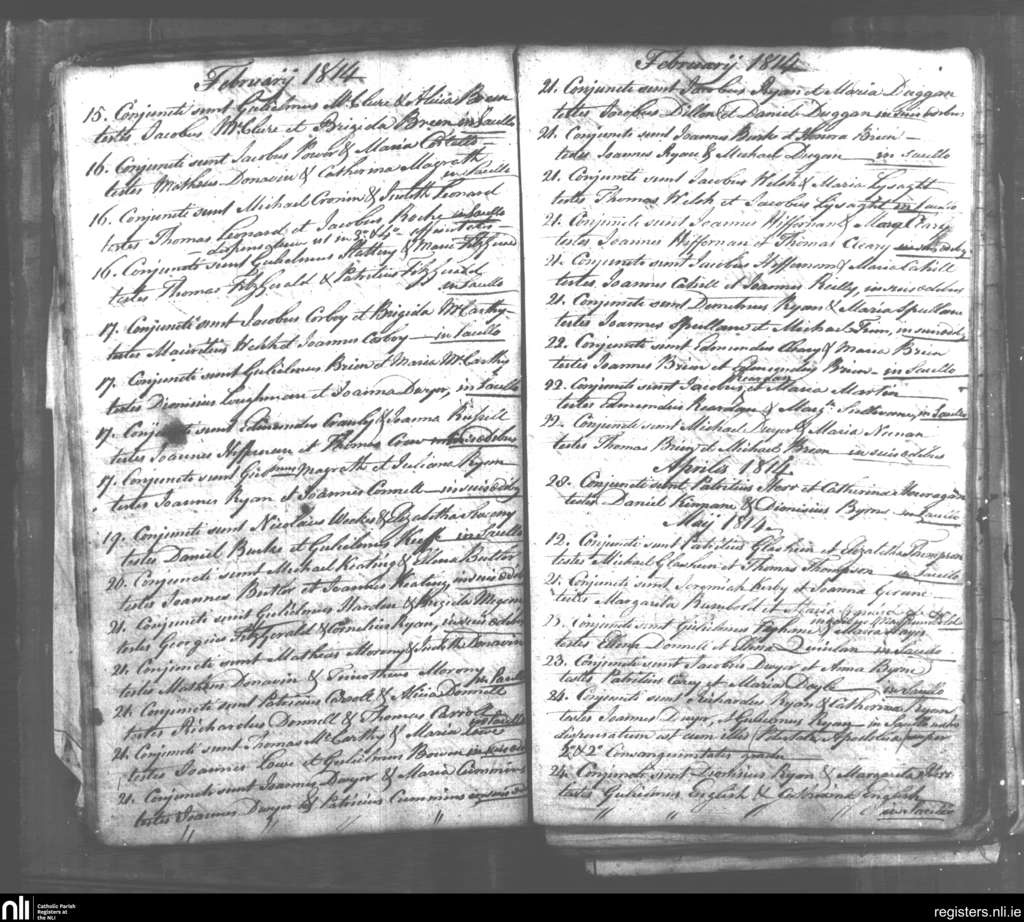 February 1814
15. Conjuncti sunt Gulielmus McClure & Alicia Breen
testes Jacobus McClure et Brigida Breen in Sacello
16. Conjuncti sunt Jacobus Power & Maria
testes Matheus Donavin & Catherina Magrath
in Sacello
16. Conjuncti sunt Michael Cronin & Judith Leonard
testes Thomas Leonard et Jacobus Roche in Sacello
in 3° & 4° affinitatis
16. Conjuncti sunt Gulielmus Slattery & Maria FitzGerald
testes Thomas FitzGerald & Patritius FitzGerald
in Sacello
17. Conjuncti sunt Jacobus Corboy et Brigida McCarthy
testes Mauritius Welsh et Joannes Corboy in Sacello
17. Conjuncti sunt Gulielmus Brien et Maria McCarthy
testes Dionisius Loughman et Joanna Dwyer, in Sacello
17. Conjuncti sunt Edmundus Crauly & Joanna Russill
testes Joannes Heffernan et Thomas in suis ædibus
17. Conjuncti sunt Magrath et Juliana Ryan
testes Joannes Ryan et Joannes Connell in suis ædibg
19. Conjuncti sunt Nicolaus Weekes & Elizabetha
testes Daniel Burke et Gulielmus Keeffe in Sacello
20. Conjuncti sunt Michael Keating & Ellena Butler
testes Joannes Butler et Joannes Keating in suis ædib
21. Conjuncti sunt Gulielmus Harden & Brigida
testes Georgius FitzGerald & Cornelius Ryan, in suis ædibus
21. Conjuncti sunt Matheus Morony & Judith Donavin
testes Matheus Donavin & Timotheus Morony
in Sacello
21. Conjuncti sunt Patricius & Alicia Donnell
testes Richardus Donnell & Thomas Carroll
in Sacello
21. Conjuncti sunt Thomas McCarthy & Maria Lowe
testes Joannes Lowe et Gulielmus in suis æd
21. Conjuncti sunt Joannes Dwyer & Maria Cummins
testes Joannes Dwyer & Patricius Cummins in suis æd
February 1814
21. Conjuncti sunt Jacobus Ryan et Maria Duggan
testes Jacobus Dillon et Daniel Duggan in suis ædibus
21. Conjuncti sunt Joannes Burke et Honora Brien
testes Joannes Ryan & Michael Dugan in Sacello
21. Conjuncti sunt Jacobus Welsh & Maria Lysaght
testes Thomas Welsh et Jacobus Lysaght in Sacello
21. Conjuncti sunt Joannes Heffernan & Mary Cleary
testes Joannes Heffernan et Thomas Cleary in suis ædibg
21. Conjuncti sunt Jacobus Heffernan & Maria Cahill
testes Joannes Cahill et Joannes Reilly, in suis ædibus
21. Conjuncti sunt Demetrius Ryan & Maria Spellane
testes Joannes Spellane et Michael in suis ædib
22. Conjuncti sunt Edmundus Cleary & Maria Brien
testes Joannes Brien et Edmundus Brien in Sacello
Reardan
22. Conjuncti sunt Jacobus et Maria Martin
testes Edmundus Reardan & Margt. in Sacello
22. Conjuncti sunt Michael Dwyer & Maria Noonan
testes Thomas Brien et Michael Brien in suis ædibus
Aprilis 1814
28. Conjuncti sunt Patritius Herr et Catherina Houragan
testes Daniel Kinnane & Dionisius Byrns in Sacello
May 1814
12. Conjuncti sunt Patritius Glasheen et Elizabetha Thompson
testes Michael Glasheen et Thomas Thompson in Sacello
21. Conjuncti sunt Jeremiah Kirby et Joanna
testes Margarita Rumbold et Maria
Conjuncti sunt Gulielmus & Maria Hayes
testes Ellena Donnell et Ellena Quinlan in Sacello
23. Conjuncti sunt Jacobus Dwyer et Anna Byrne
testes Patritius Carey et Maria Doyle in Sacello
24. Conjuncti sunt Richardus Ryan & Catherina Ryan
testes Joannes Dwyer, & Gulielmus Ryan in Sacello
dispensatum est cum illis super
2° & 2° Consanguinitatis gradu
24. Conjuncti sunt Dionisius Ryan & Margarita Herr
testes Gulielmus English & Catherina English
in Sacello
nli Catholic Parish
Registers at
the NLI
registers.nli.ie